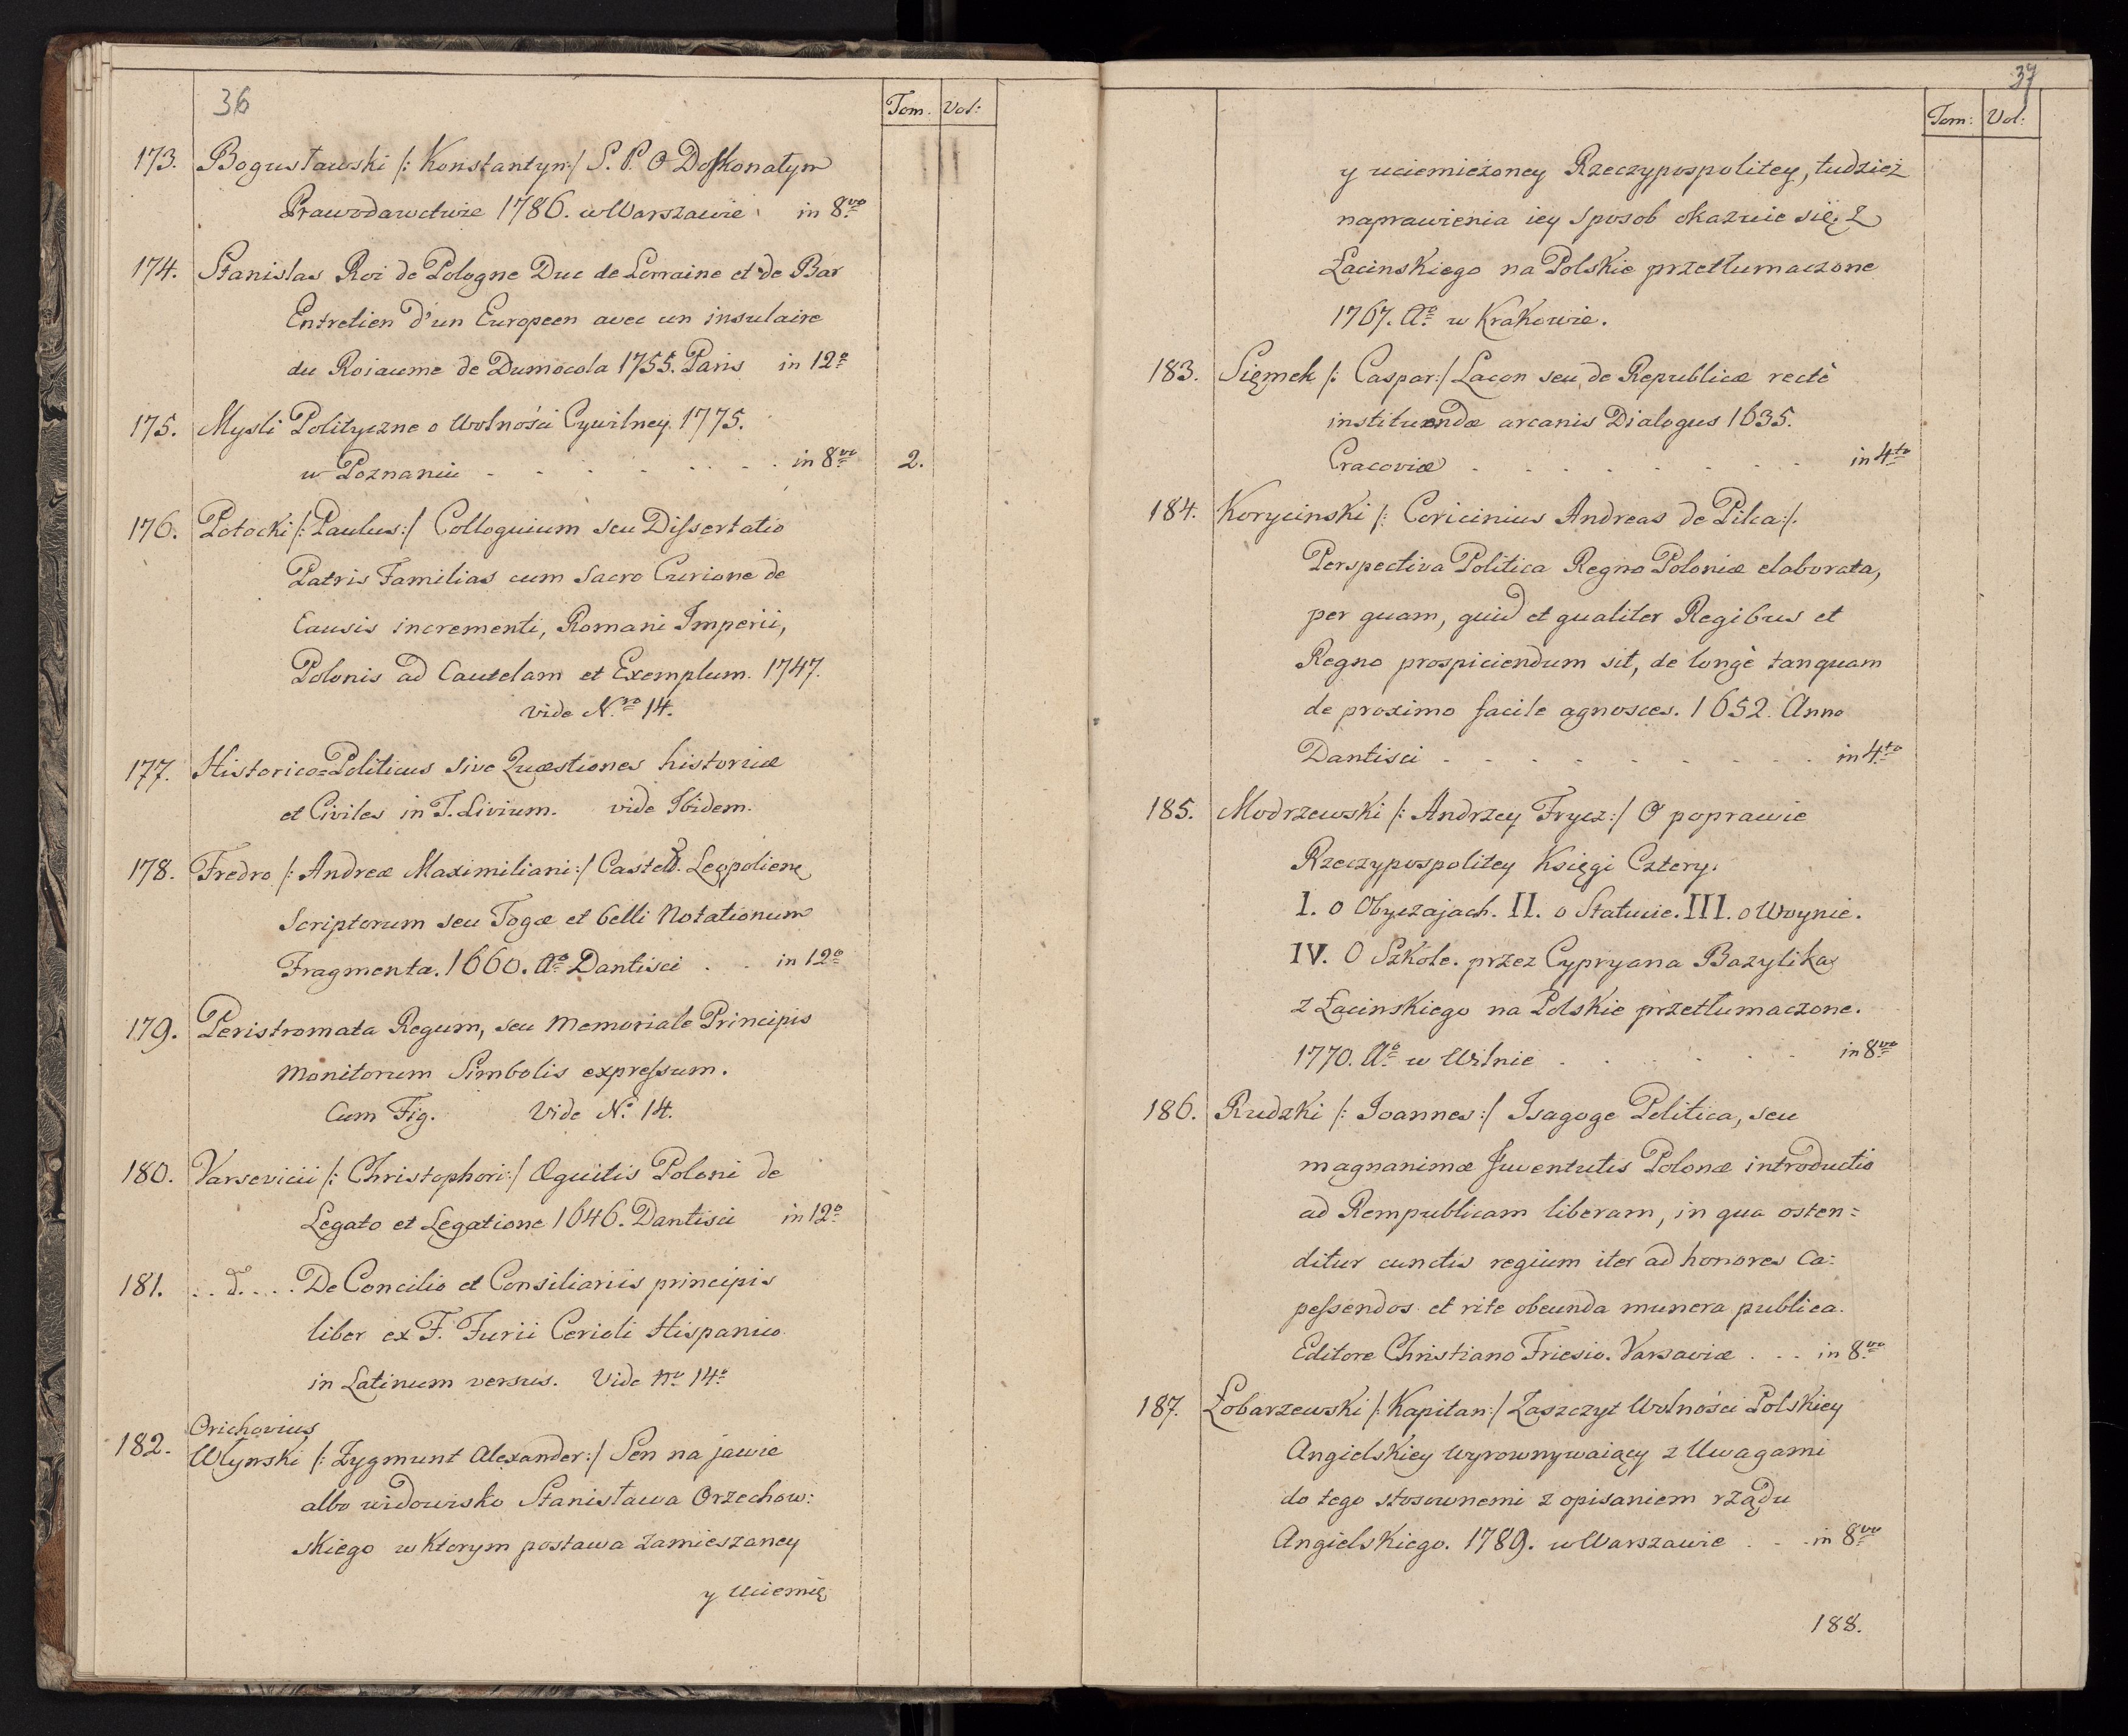 36
Tom. Vol:
173. Bogusławski /: Konstantyn:/ S. P. O Doſkonałym
Prawodawctwie 1786. w Warszawie in 8vo
174. Stanislas Roi de Pologne Duc de Lorraine et de Bar
Entretien d'un Europeen avec un insulaire
du Roiaume de Dumocola 1755. Paris in 12o
175. Mysli Polityczne o Wolności Cywilney. 1775.
w Poznaniu - - - - - - - in 8vo 2.
176. Potocki /: Paulus:/ Colloquium seu Diſsertatio
Patris Familias cum Sacro Curione de
Causis incrementi, Romani Imperii,
Polonis ad Cautelam et Exemplum. 1747.
vide N.ro 14.
177. Historico=Politicus sive Quæstiones historicæ
et Civiles in T. Livium. vide Ibidem.
178. Fredro /: Andreæ Maximiliani:/ Castell. Leopolien
Scriptorum seu Togæ et belli Notationum
Fragmenta. 1660. Ao Dantisci . . in 12o
179. Peristromata Regum, seu Memoriale Principis
Monitorum Simbolis expreſsum.
Cum Fig. Vide No 14.
180. Varsevicii /: Christophori:/ Æquitis Poloni de
Legato et Legatione 1646. Dantisci in 12o
181. . . d. . . . De Concilio et Consiliariis principis
liber ex F. Furii Cerioli Hispanico
in Latinum versus. Vide No 14o
Orichovius
182. Włynski /: Zygmunt Alexander:/ Sen na jawie
albo widowisko Stanisława Orzechow:
skiego w ktorym postawa zamieszaney
y Uciemię
37
Tom: Vol:
y uciemiężoney Rzeczypospolitey, tudzież
naprawienia iey sposob okazuie się. Z
Łacinskiego na Polskie przetłumaczone
1767. Ao w Krakowie.
183. Sięmek /: Caspar:/ Lacon seu de Republicæ rectè
instituendæ arcanis Dialogus 1635.
Cracoviæ . - - - - - - - in 4to
184. Korycinski /: Coricinius Andreas de Pilca:/.
Perspectiva Politica Regno Poloniæ elaborata,
per quam, quid et qualiter Regibus et
Regno prospiciendum sit, de longè tanquam
de proximo facile agnosces. 1652. Anno
Dantisci - - - - - - - - - in 4to
185. Modrzewski /: Andrzey Frycz:/ O poprawie
Rzeczypospolitey Księgi Cztery.
I. o Obyczajach. II. o Statucie. III. o Woynie.
IV. O Szkole. przez Cypryana Bazylika
z Łacinskiego na Polskie przetłumaczone.
1770. Ao w Wilnie . - - - - - in 8vo
186. Rudzki /: Ioannes:/ Isagoge Politica, seu
magnanimæ Juventutis Polonæ introductio
ad Rempublicam liberam, in qua osten=
ditur cunctis regium iter ad honores Ca=
peſsendos et rite obeunda munera publica.
Editore Christiano Friesio. Varsaviæ . . . in 8vo
187. Łobarzewski /: Kapitan:/ Zaszczyt Wolności Polskiey
Angielskiey wyrownywaiący z Uwagami
do tego stosownemi z opisaniem rządu
Angielskiego. 1789. w Warszawie . . . in 8vo
188.